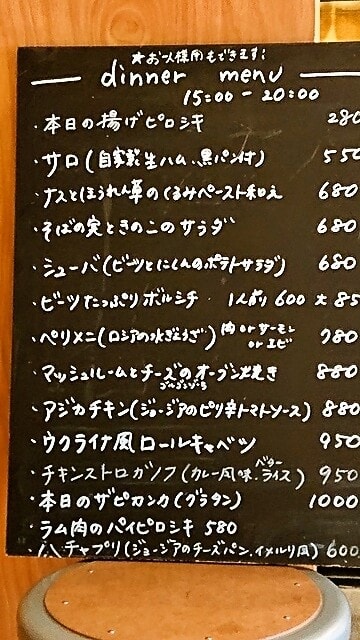 ★お一人様用もできます!
dinner menu
15:00-20:00
・本日の揚げピロシキ 280
・サロ(自家製生ハム、黒パン付) 550
・ナスとほうれん草のくるみペースト和え 680
・そばの実ときのこのサラダ 680
・シューバ(ビーツとにしんのポテトサラダ) 680
・ビーツたっぷりボルシチ 1人前り 600 大 85
・ペリメニ(ロシアの水ぎょうざ) 肉 or サーモン 980
or エビ
・マッシュルームとチーズのオーブン焼き 880
ゴルゴンゾーラ
・アジカチキン(ジョージアのピリ辛トマトソース) 880
・ウクライナ風ロールキャベツ 950
・チキンストロガノフ(カレー風味、バターライス) 950
・本日のザピカンカ(グラタン) 1000
・ラム肉のパイピロシキ 580
・ハチャプリ(ジョージアのチーズパン、イメルリ風) 600